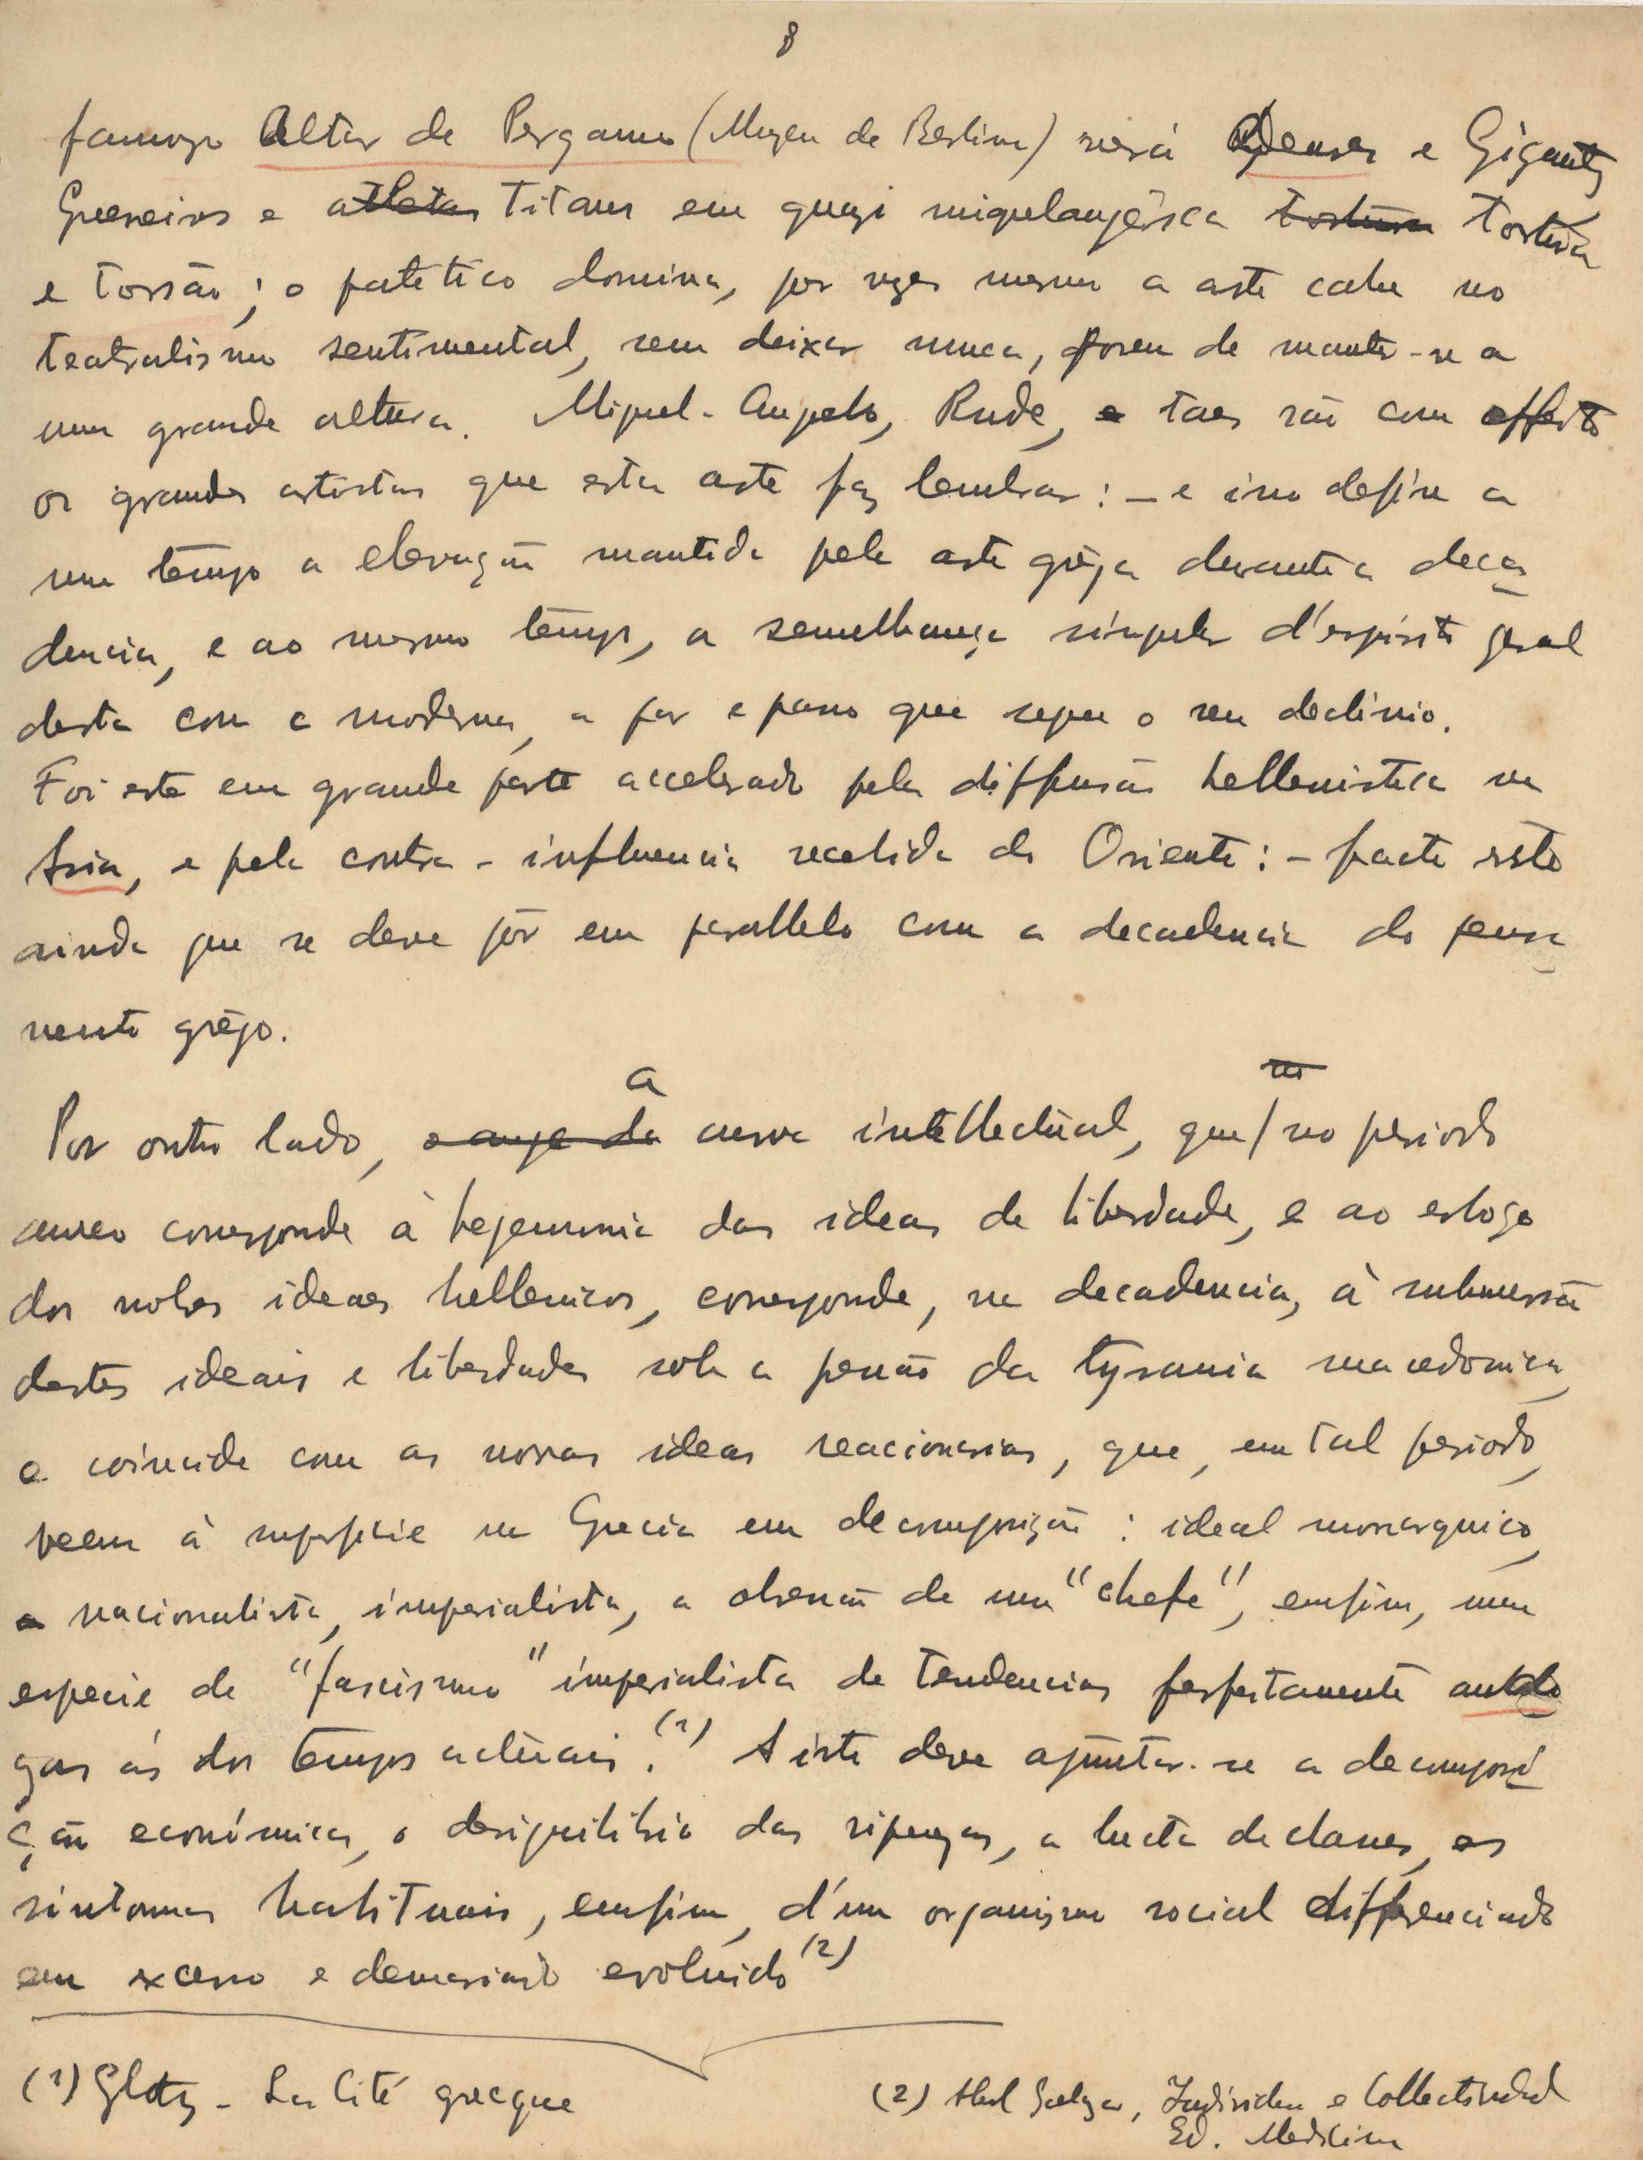 8
famozo Altar de Pergamo (Muzeu de Berlim) será Deuses e Gigantes
Guerreiros e atletas Titans em quazi miguelangêsca tortura tortura
e torsão; o patetico domina, por vezes mesmo a arte cahe no
teatralismo sentimental, sem deixar nunca, porem de manter-se a
uma grande altura. Miguel-Angelo, Rude, e taes são com effeito
os grandes artistas que esta arte faz lembrar: – e isso define a
um tempo a elevação mantida pela arte grêga durante a deca
dencia, e ao mesmo tempo, a semelhança singular d'espirito geral
desta com a moderna, a par e passo que segue o seu declinio.
Foi este em grande parte accelerado pela diffusão hellenistica na
Asia, e pela contra-influencia recebida do Oriente: – facto este
ainda que se deve pôr em parallelo com a decadencia do pensa
mento grêgo.
a
no
Por outro lado, o auge da curva intellectual, que/no periodo
aureo corresponde à hegemonia das ideas de liberdade, e ao
dos nobres ideaes hellenicos, corresponde, na decadencia, à submersão
destes ideais e liberdades sob a pressão da tyrania macedonica,
e coincide com as novas ideas reacionarias, que, em tal periodo,
veem à superficie na Grecia em decomposição: ideal monarquico,
e nacionalista, imperialista, a obsessão de um "chefe", emfim, uma
especie de "fascismo" imperialista de tendencias perfeitamente analo
gas ás dos tempos actuais.(1) A isto deve ajuntar-se a decomposi
ção económica, o desiquilibrio das riquezas, a lucta de classes, os
sintomas habituais, emfim, d'um organismo social differenciado
em excesso e demasiado evoluido(2)
(1) Glotz – La Cité grecque
(2) Abel Salazar, Individuo e Collectividad
Ed. Medicina